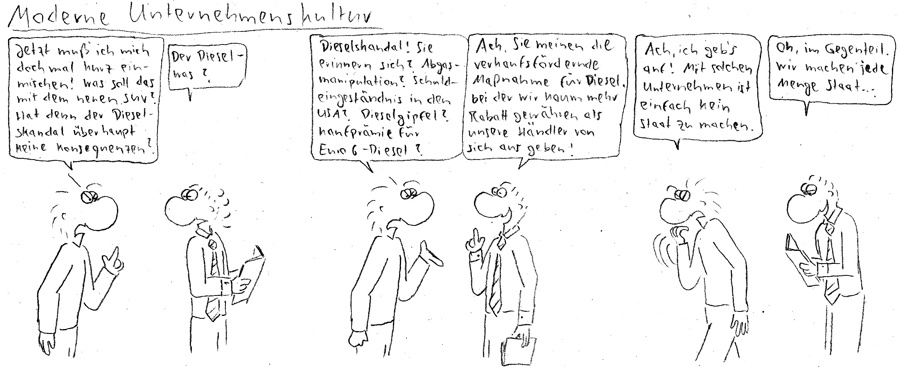 Moderne Unternehmenskultur
Jetzt muß ich mich
doch mal kurz ein-
mischen! Was soll das
mit dem neuen SUV?
Hat denn der Diesel-
skandal überhaupt
keine Konsequenzen?
Der Diesel-
was?
Dieselskandal! Sie
erinnern sich? Abgas-
manipulation? Schuld-
eingeständnis in den
USA? Dieselgipfel?
Kaufprämie für
Euro 6-Diesel?
Ach, Sie meinen die
verkaufsfördernde
Maßnahme für Diesel,
bei der wir kaum mehr
Rabatt gewähren als
unsere Händler von
sich aus geben!
Ach, ich geb's
auf! Mit solchen
Unternehmen ist
einfach kein
Staat zu machen.
Oh, im Gegenteil.
Wir machen jede
Menge Staat...